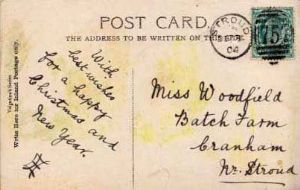 POST CARD.
THE ADDRESS TO BE WRITTEN ON THIS
Write Here for Inland Postage only.
With
best wishes
for a happy
Christmas and
New Year.
STROUD
04
Miss Woodfield
Batch Farm
Cranham
Nr. Stroud